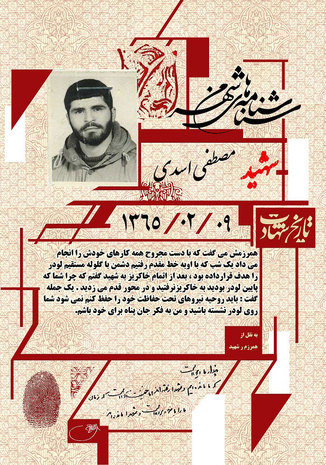 شناسنامه های شهر من
شهید
مصطفی اسدی
۱۳۶۵/۰۲/۰۹
تاریخ شهادت
همرزمش می گفت که با دست مجروح همه کارهای خودش را انجام
می داد یک شب که با اوبه خط مقدم رفتیم دشمن با گلوله مستقیم لودر
را هدف قرارداده بود ، بعد از اتمام خاکریز به شهید گفتم که چرا شما که
پایین لودر بودید به خاکریزنرفتید و در محور قدم می زدید . یک جمله
گفت : باید روحیه نیروهای تحت حفاظت خود را حفظ کنم نمی شود شما
روی لودر نشسته باشید و من به فکر جان پناه برای خود باشم.
به نقل از
همرزم شهید